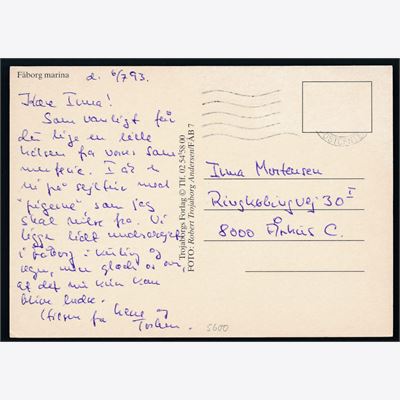 Fåborg marina
d. 6/7 93.
Kære Inna!
Som vanligt får
du lige en lille
hilsen fra vores som
merferie. I år er
vi på sejltur med
"pigerne" som jeg
skal hilse fra. Vi
ligger lidt underdrejet
i Fåborg i kuling og
regn, men glade er vi,
at det nu kun kan
blive bedre.
Hilsen fra Lene og
Torben.
Trojaborgs Forlag © Tlf. 02 54 58 00
FOTO: Robert Trojaborg Andersen/FÅB 7
Inna Mortensen
Ringkøbingvej 30 I
8000 Århus C.
5600